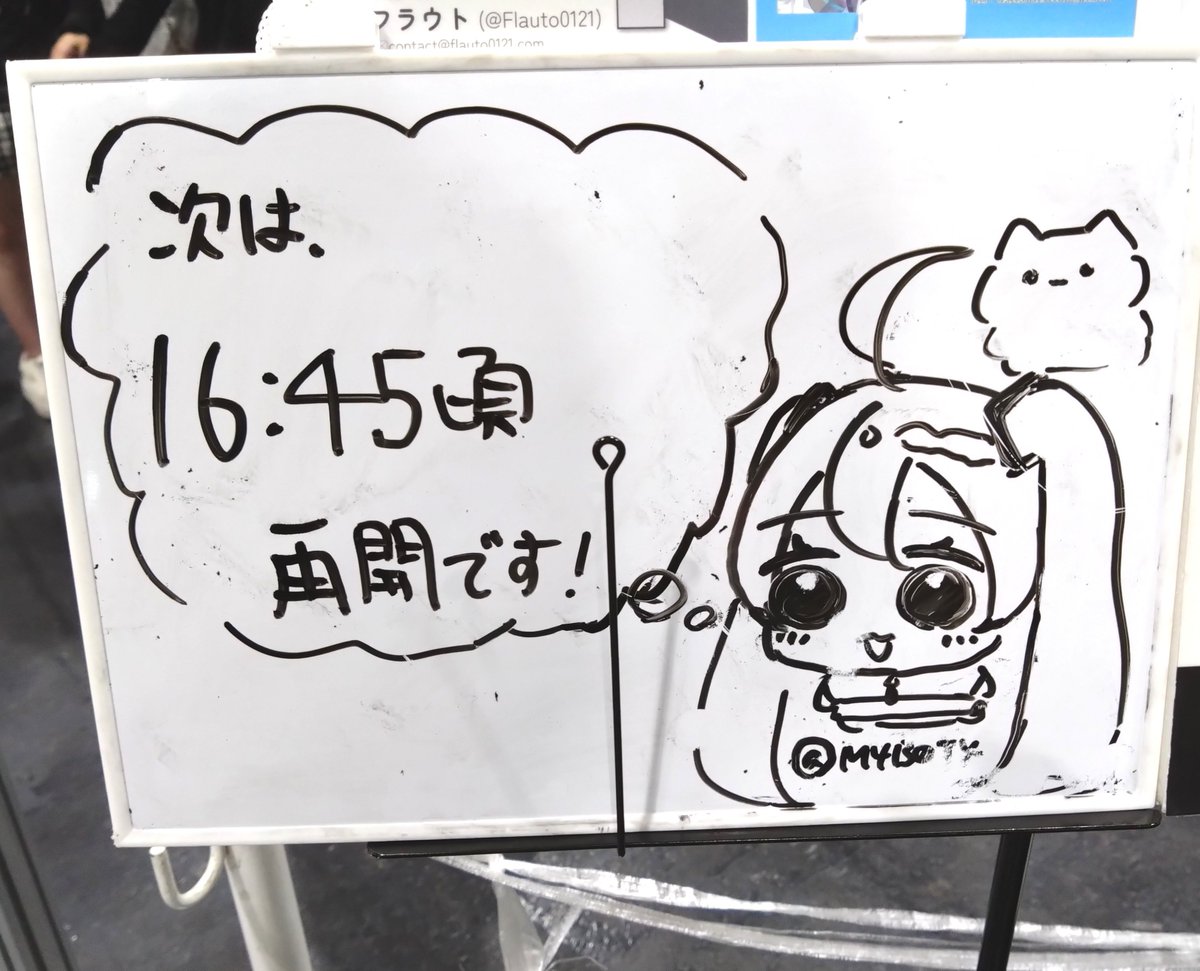 フラウト (@Flauto0121)
contact@flauto0121.com
次は、
16:45頃
再開です!